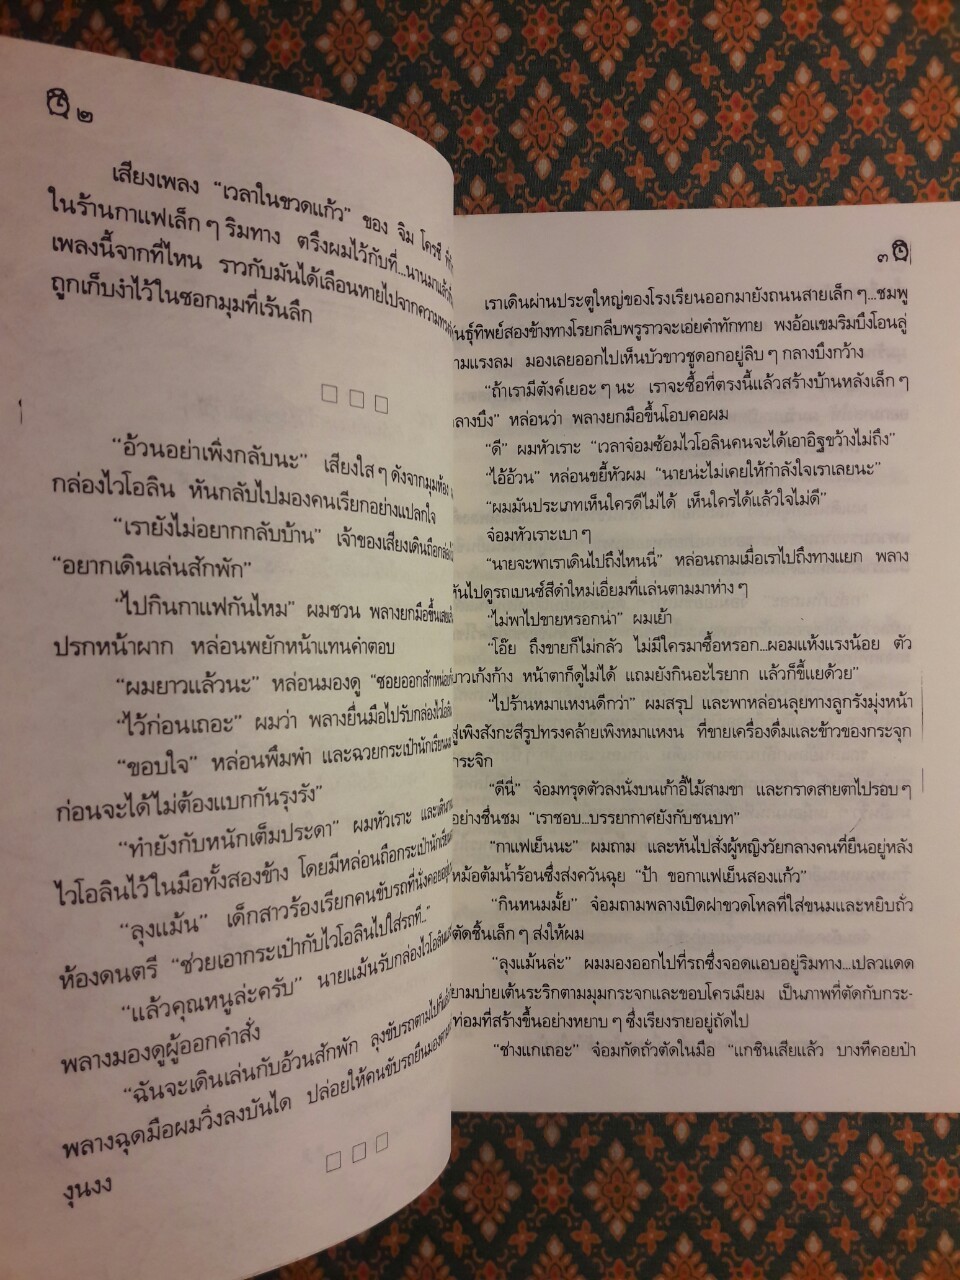 ๒
เสียงเพลง “เวลาในขวดแก้ว” ของ จิม โครชี
ในร้านกาแฟเล็ก ๆ ริมทาง ตรึงผมไว้กับที่...นานมาแล้ว
เพลงนี้จากที่ไหน ราวกับมันได้เลือนหายไปจากความ
ถูกเก็บงำไว้ในซอกมุมที่เร้นลึก
“อ้วนอย่าเพิ่งกลับนะ” เสียงใส ๆ ดังจากมุมห้อง
กล่องไวโอลิน หันกลับไปมองคนเรียกอย่างแปลกใจ
“เรายังไม่อยากกลับบ้าน” เจ้าของเสียงเดินถือกล่อง
“อยากเดินเล่นสักพัก”
“ไปกินกาแฟกันไหม” ผมชวน พลางยกมือขึ้นเสย
ปรกหน้าผาก หล่อนพยักหน้าแทนคำตอบ
“ผมยาวแล้วนะ” หล่อนมองดู “ซอยออกสักหน่อย
“ไว้ก่อนเถอะ” ผมว่า พลางยื่นมือไปรับกล่องไวโอลิน
“ขอบใจ” หล่อนพึมพำ และฉวยกระเป๋านักเรียน
ก่อนจะได้ไม่ต้องแบกกันรุงรัง”
“ทำยังกับหนักเต็มประดา” ผมหัวเราะ และเดิน
ไวโอลินไว้ในมือทั้งสองข้าง โดยมีหล่อนถือกระเป๋านักเรียน
“ลุงแม้น” เด็กสาวร้องเรียกคนขับรถที่นั่งคอยอยู่
ห้องดนตรี “ช่วยเอากระเป๋ากับไวโอลินไปใส่รถที..”
“แล้วคุณหนูล่ะครับ” นายแม้นรับกล่องไวโอลิน
พลางมองดูผู้ออกคำสั่ง
“ฉันจะเดินเล่นกับอ้วนสักพัก ลุงขับรถตามไป
พลางฉุดมือผมวิ่งลงบันได ปล่อยให้คนขับรถยืนมอง
งุนงง
๓
เราเดินผ่านประตูใหญ่ของโรงเรียนออกมายังถนนสายเล็ก ๆ...ชมพู
พันธุ์ทิพย์สองข้างทางโรยกลีบพรูราวจะเอ่ยคำทักทาย พงอ้อแขมริมบึงโอนลู่
ตามแรงลม มองเลยออกไปเห็นบัวขาวชูดอกอยู่ลิบ ๆ กลางบึงกว้าง
“ถ้าเรามีตังค์เยอะ ๆ นะ เราจะซื้อที่ตรงนี้แล้วสร้างบ้านหลังเล็ก ๆ
กลางบึง” หล่อนว่า พลางยกมือขึ้นโอบคอผม
“ดี” ผมหัวเราะ “เวลาจ๋อมซ้อมไวโอลินคนจะได้เอาอิฐขว้างไม่ถึง”
“ไอ้อ้วน” หล่อนขยี้หัวผม “นายน่ะไม่เคยให้กำลังใจเราเลยนะ”
“ผมมันประเภทเห็นใครดีไม่ได้ เห็นใครได้แล้วใจไม่ดี”
จ๋อมหัวเราะเบา ๆ
“นายจะพาเราเดินไปถึงไหนนี่” หล่อนถามเมื่อเราไปถึงทางแยก พลาง
หันไปดูรถเบนซ์สีดำใหม่เอี่ยมที่แล่นตามมาห่าง ๆ
“ไม่พาไปขายหรอกน่า” ผมเย้า
“โอ๊ย ถึงขายก็ไม่กลัว ไม่มีใครมาซื้อหรอก...ผอมแห้งแรงน้อย ตัว
ยาวเก้งก้าง หน้าตาก็ดูไม่ได้ แถมยังกินอะไรยาก แล้วก็ขี้แยด้วย”
“ไปร้านหมาแหงนดีกว่า” ผมสรุป และพาหล่อนลุยทางลูกรังมุ่งหน้า
สู่เพิงสังกะสีรูปทรงคล้ายเพิงหมาแหงน ที่ขายเครื่องดื่มและข้าวของกระจุก
กระจิก
“ดีนี่” จ๋อมทรุดตัวลงนั่งบนเก้าอี้ไม้สามขา และกราดสายตาไปรอบ ๆ
อย่างชื่นชม “เราชอบ...บรรยากาศยังกับชนบท”
“กาแฟเย็นนะ” ผมถาม และหันไปสั่งผู้หญิงวัยกลางคนที่ยืนอยู่หลัง
หม้อต้มน้ำร้อนซึ่งส่งควันฉุย “ป้า ขอกาแฟเย็นสองแก้ว”
“กินหนมมั้ย” จ๋อมถามพลางเปิดฝาขวดโหลที่ใส่ขนมและหยิบถั่ว
ตัดชิ้นเล็ก ๆ ส่งให้ผม
“ลุงแม้นล่ะ” ผมมองออกไปที่รถซึ่งจอดแอบอยู่ริมทาง...เปลวแดด
ยามบ่ายเต้นระริกตามมุมกระจกและขอบโครเมียม เป็นภาพที่ตัดกับกระ-
ท่อมที่สร้างขึ้นอย่างหยาบ ๆ ซึ่งเรียงรายอยู่ถัดไป
“ช่างแกเถอะ” จ๋อมกัดถั่วตัดในมือ “แกชินเสียแล้ว บางทีคอยป๋า